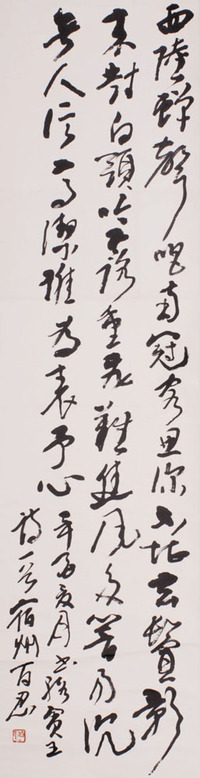 西陸蟬聲唱南冠客思深不堪玄鬢影
来對白頭吟露重飛難進風多響易沉
無人信高潔誰為表予心
辛夏月書駱賓王
詩一首宿州百忍